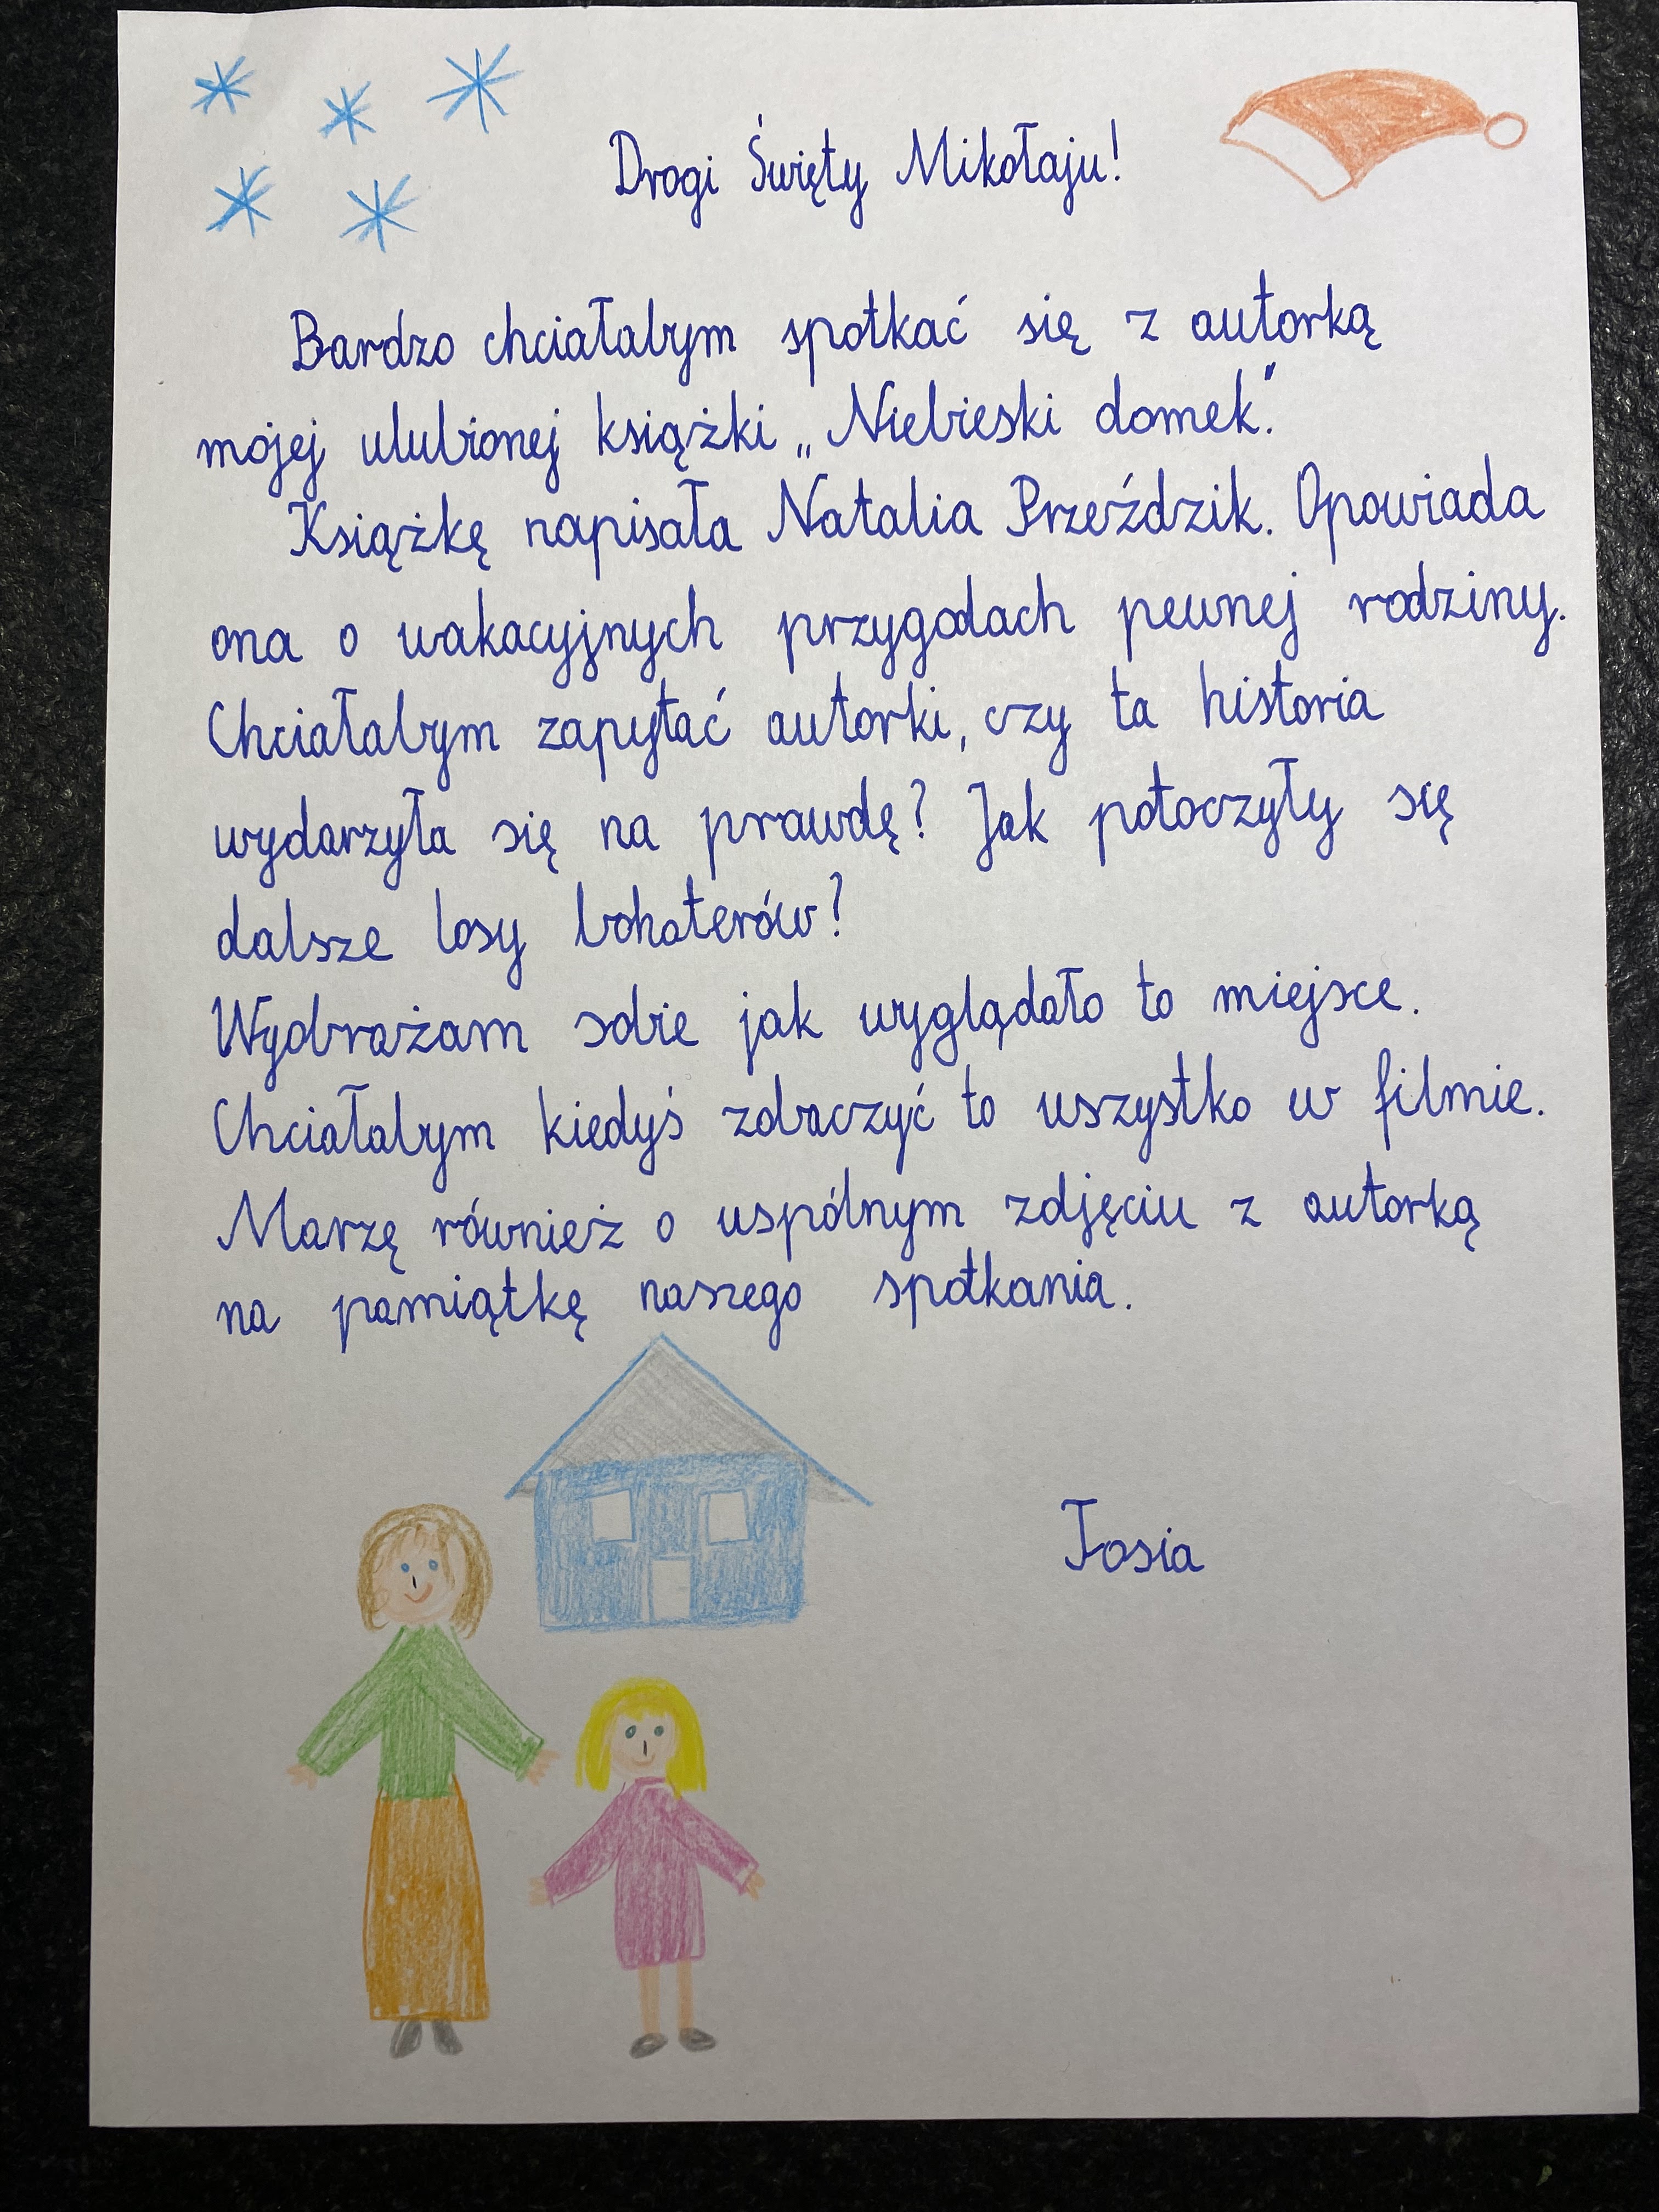 Drogi Święty Mikołaju!
Bardzo chciałabym spotkać się z autorką
mojej ulubionej książki „Niebieski domek”.
Książkę napisała Natalia Przeździk. Opowiada
ona o wakacyjnych przygodach pewnej rodziny.
Chciałabym zapytać autorki, czy ta historia
wydarzyła się na prawdę? Jak potoczyły się
dalsze losy bohaterów?
Wyobrażam sobie jak wyglądało to miejsce.
Chciałabym kiedyś zobaczyć to wszystko w filmie.
Marzę również o wspólnym zdjęciu z autorką
na pamiątkę naszego spotkania.
Tosia